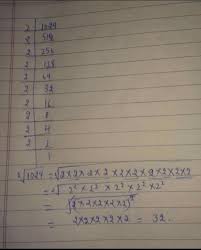 2 | 1024
2 | 512
2 | 256
2 | 128
2 | 64
2 | 32
2 | 16
2 | 8
2 | 4
2 | 2
1
√1024 = √2×2×2×2×2×2×2×2×2×2
= √2²×2²×2²×2²×2²
= √(2×2×2×2×2)²
= 2×2×2×2×2 = 32.